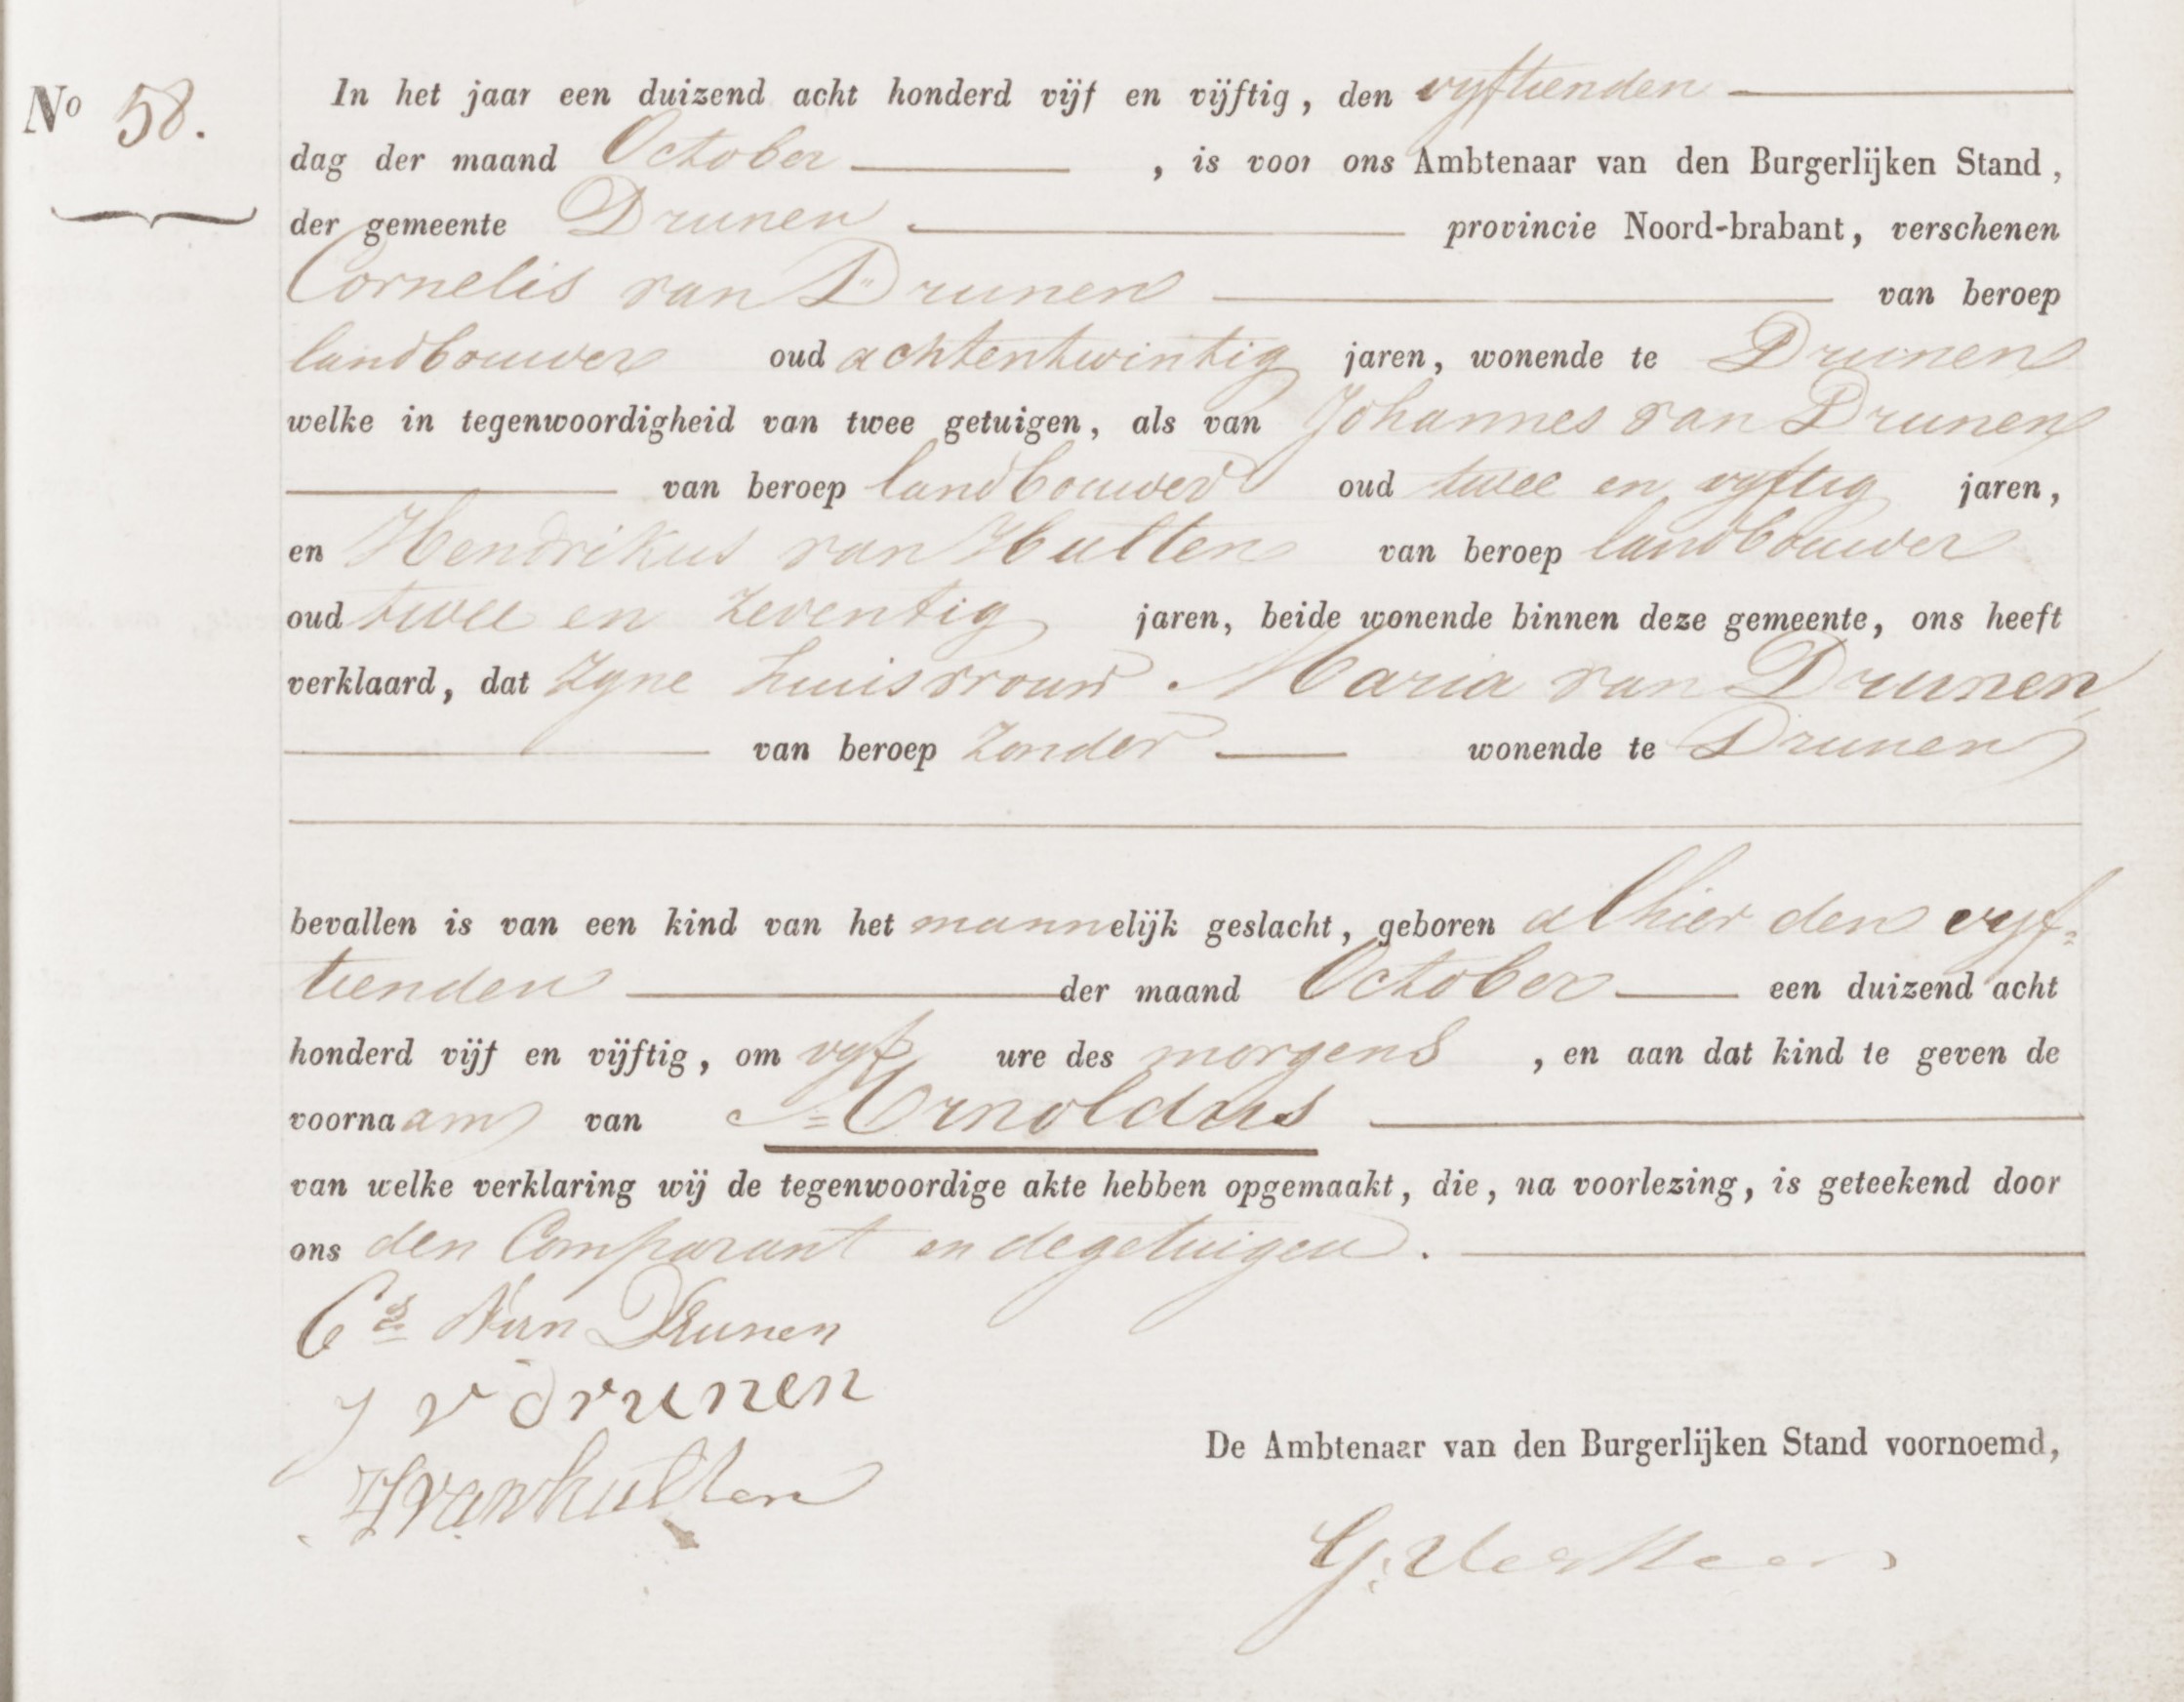 No 58.
In het jaar een duizend acht honderd vijf en vijftig, den vyftienden
dag der maand October, is voor ons Ambtenaar van den Burgerlijken Stand,
der gemeente Drunen provincie Noord-brabant, verschenen
Cornelis van Drunen van beroep
landbouwer oud achtentwintig jaren, wonende te Drunen
welke in tegenwoordigheid van twee getuigen, als van Johannes van Drunen
van beroep landbouwer oud twee en vyftig jaren,
en Hendrikus van Hulten van beroep landbouwer
oud twee en zeventig jaren, beide wonende binnen deze gemeente, ons heeft
verklaard, dat zyne huisvrouw Maria van Drunen
van beroep zonder wonende te Drunen
bevallen is van een kind van het mannelijk geslacht, geboren alhier den vyf=
tienden der maand October een duizend acht
honderd vijf en vijftig, om vyf ure des morgens, en aan dat kind te geven de
voornaam van =Arnoldus
van welke verklaring wij de tegenwoordige akte hebben opgemaakt, die, na voorlezing, is geteekend door
ons den Comparant en de getuigen.
Cs Van Drunen
J v drunen
H van hulten
De Ambtenaar van den Burgerlijken Stand voornoemd,
G.